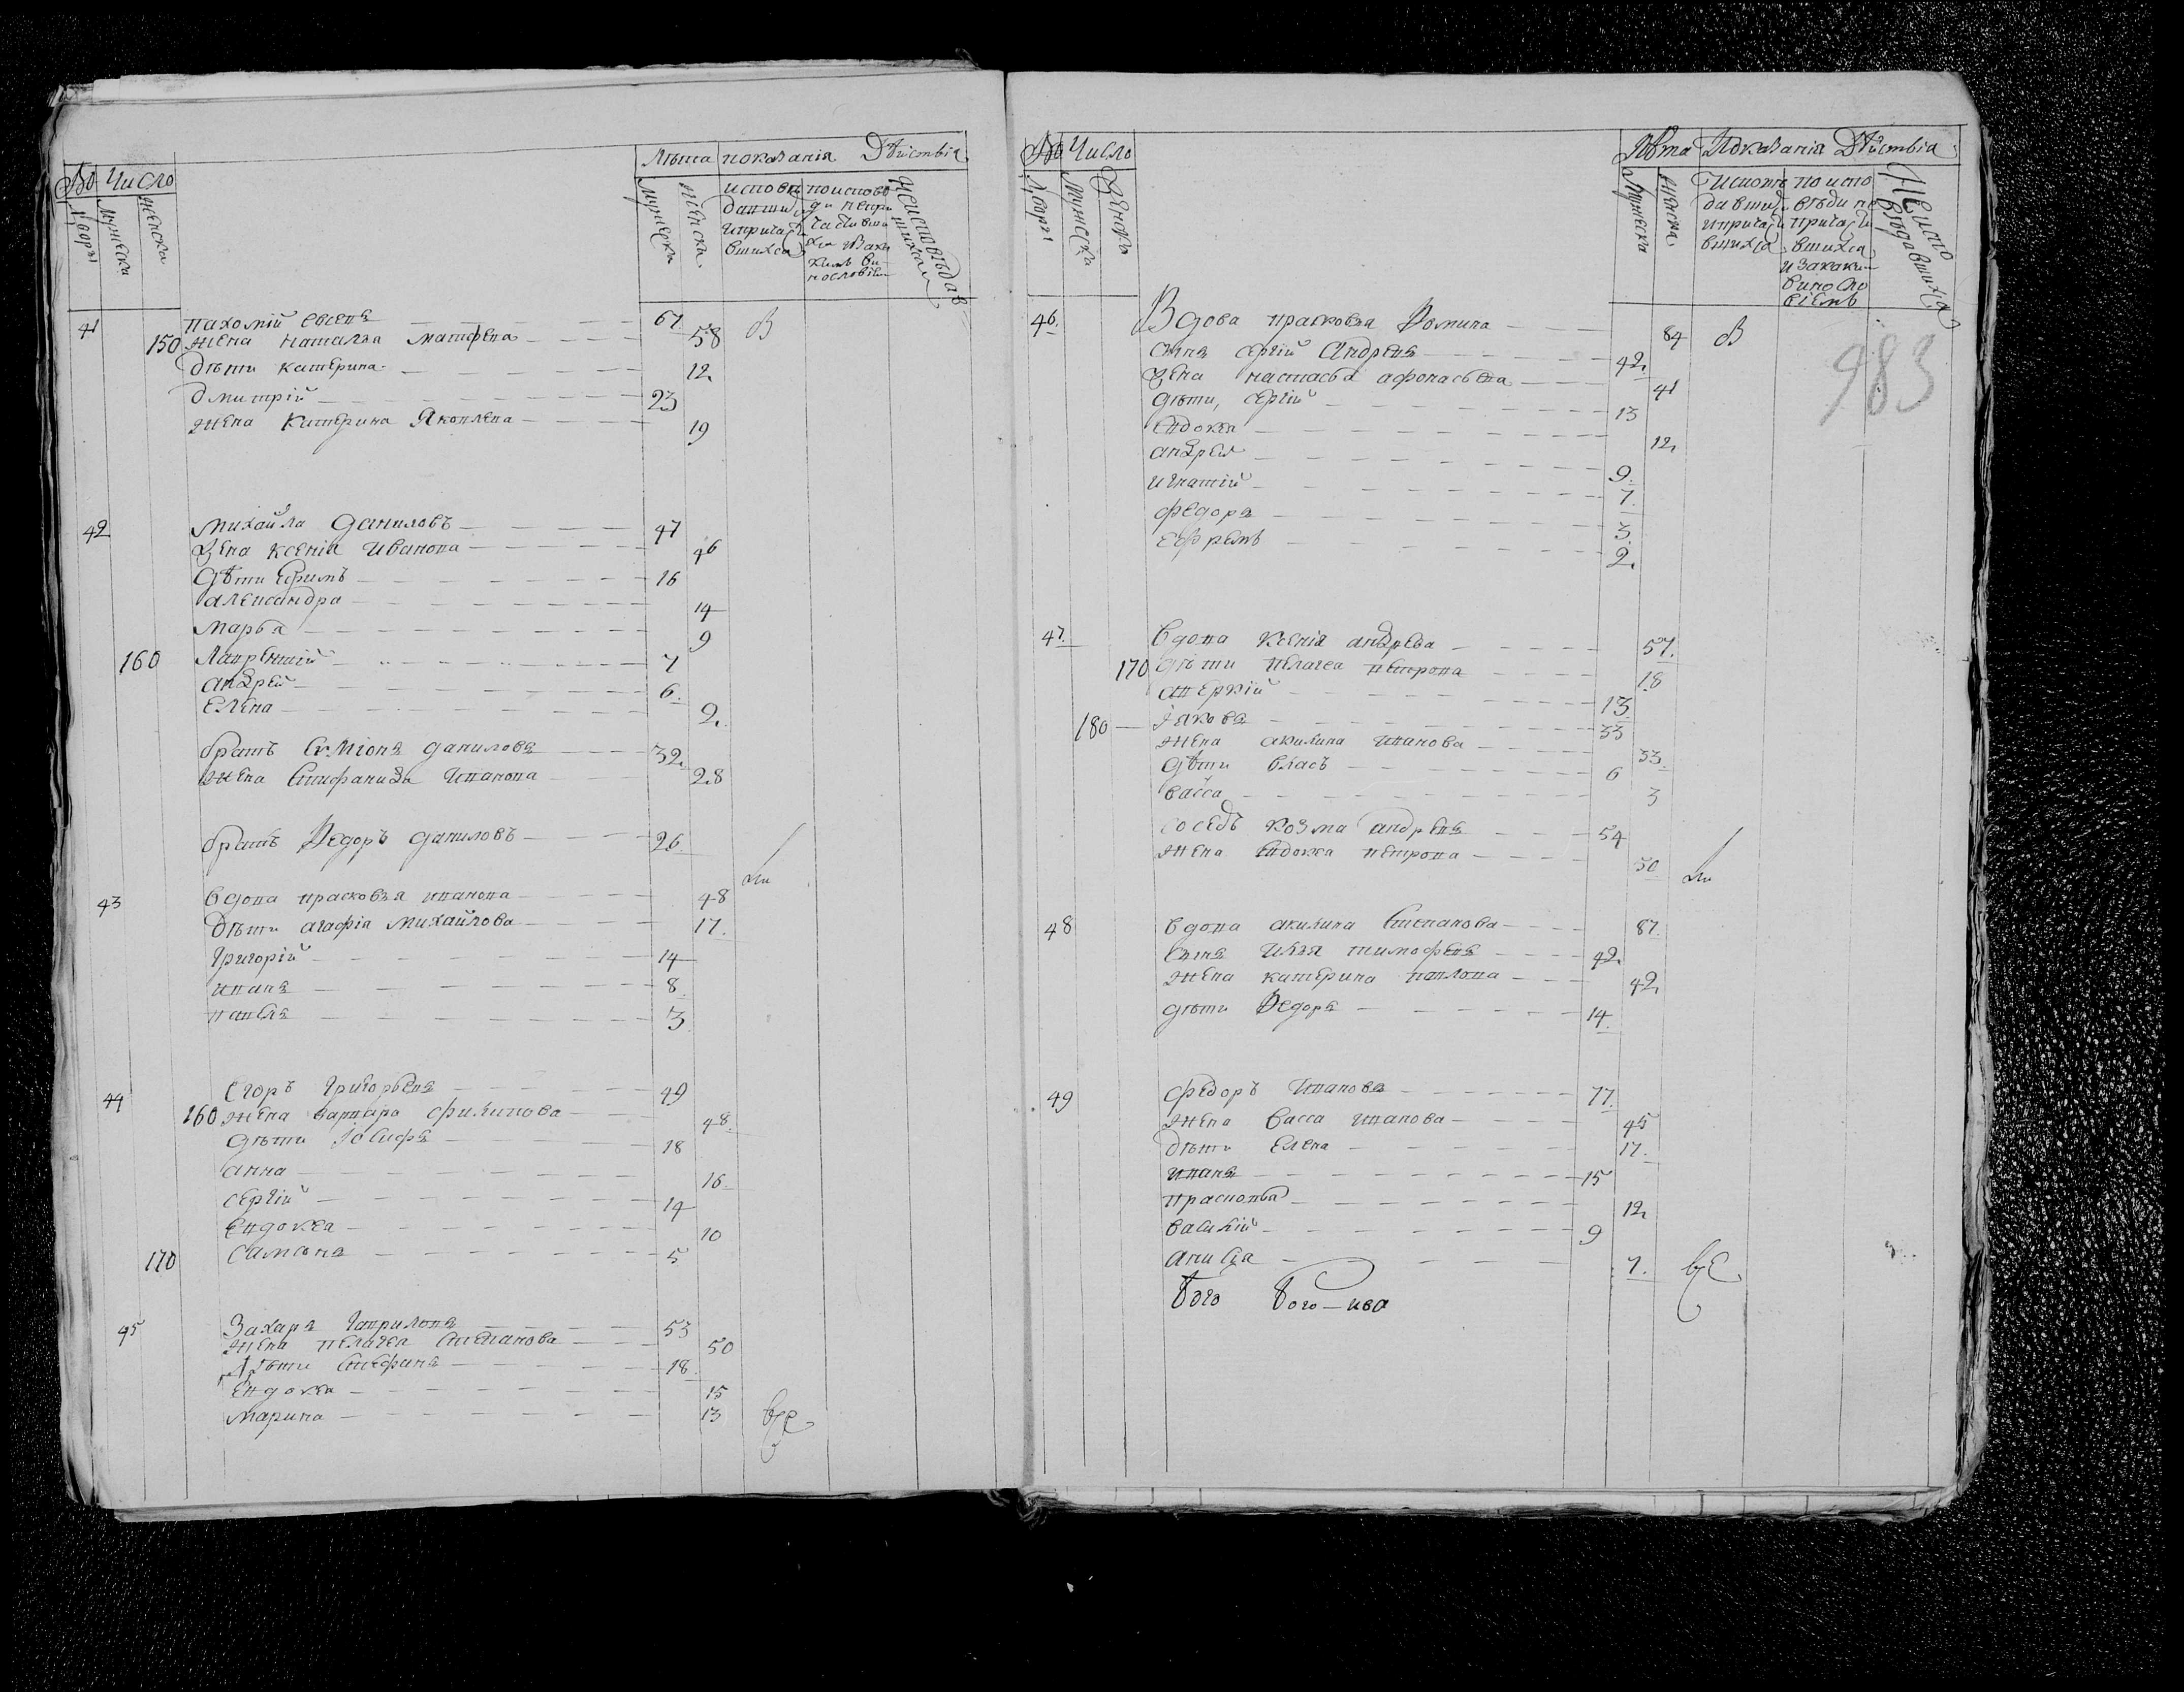 № Число Лѣта показанія Дѣиствія
дворы мужеска женска мужеска женска исповѣдавшихся и причастившихся
41 Пахомій Евсевъ 67 В
150 жена наталья матфева 58
дѣти катерина 12
дмитрій 23
жена Катерина Яковлева 19
42 Михайла даниловъ 47
жена ксенія Иванова 46
дѣти Ефимъ 16
александра 14
Марья 9
160 Лаврентій 7
андрей 6
Елена 2
братъ даниловъ 32
жена Стифанида Иванова 28
братъ Федоръ даниловъ 26
43 вдова прасковья иванова 48 ли
дѣти агафія Михайлова 17
Григорій 14
иванъ 8
павелъ 3
44 Егоръ Григорьевъ 49
160 жена варвара филипова 48
дѣти Іосифъ 18
анна 16
сергій 14
Евдокея 10
170 Самсонъ 5
45 Захаръ Гавриловъ 53
жена пелагея степанова 50
дѣти Стефанъ 18
Евдокея 15
Марина 13 все
№ Число Лѣта Показанія Дѣиствія
Дворы Мужеска Женскъ Мужеска женска
46 Вдова прасковья Фомина 84 В
983
сынъ сергій Андревъ 42
жена настасья афонасьева 41
дѣти, сергій 13
Евдокея 12
андрей 9
игнатій 7
федоръ 3
ефремъ 2
47 вдова Ксенія андрева 57
170 дѣти пелагея петрова 18
аверкій 13
180 Іаковъ 33
жена акилина иванова 33
дѣти власъ 6
васса 3
соседъ козма андревъ 54
жена Евдокея петрова 50 ли
48 вдова акилина Степанова 87
сынъ Илья тимофевъ 42
жена катерина павлова 42
дѣти Федоръ 14
49 федоръ Ивановъ 77
жена васса иванова 45
дѣти Елена 17
иванъ 15
прасковья 12
василій 9
анисья 7 все